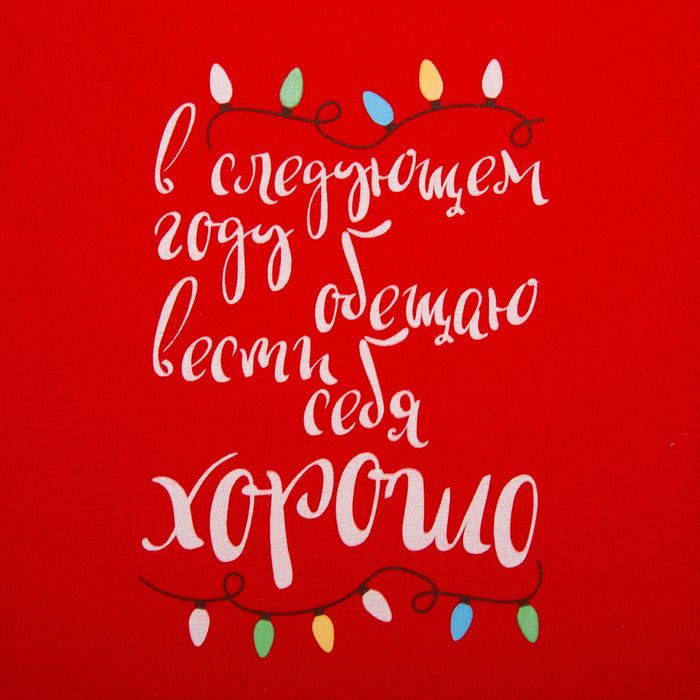 в следующем
году
обещаю
вести
себя
хорошо